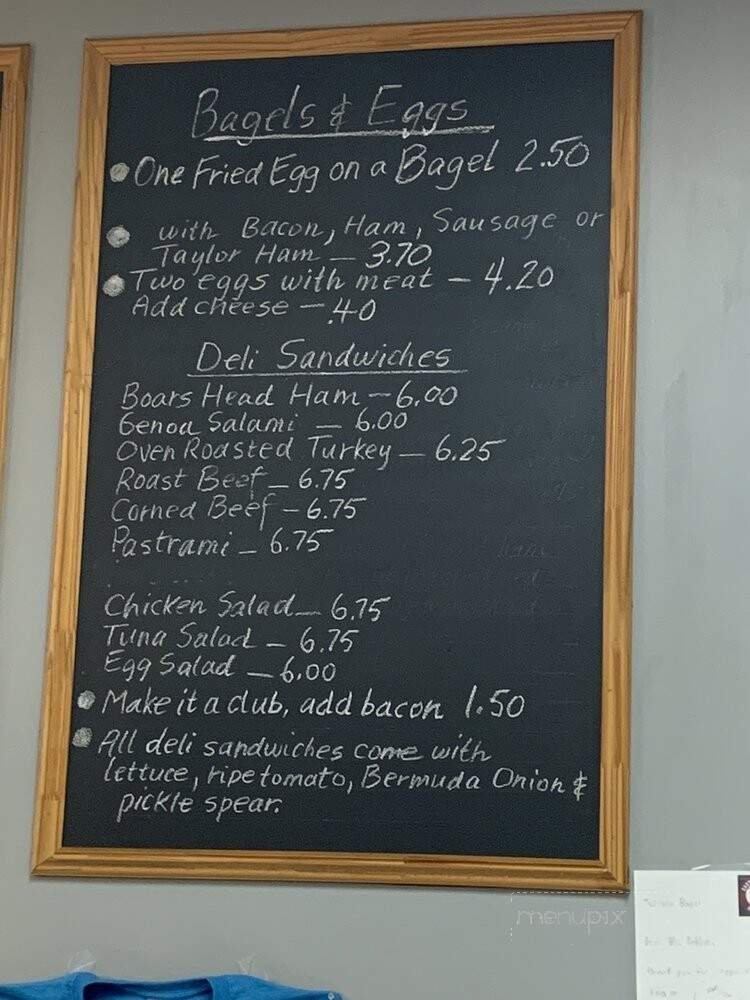 Bagels & Eggs
One Fried Egg on a Bagel 2.50
with Bacon, Ham, Sausage or
Taylor Ham — 3.70
Two eggs with meat — 4.20
Add cheese — .40
Deli Sandwiches
Boars Head Ham — 6.00
Genoa Salami — 6.00
Oven Roasted Turkey — 6.25
Roast Beef — 6.75
Corned Beef — 6.75
Pastrami — 6.75
Chicken Salad — 6.75
Tuna Salad — 6.75
Egg Salad — 6.00
Make it a club, add bacon 1.50
All deli sandwiches come with
lettuce, ripe tomato, Bermuda Onion &
pickle spear.
menupix